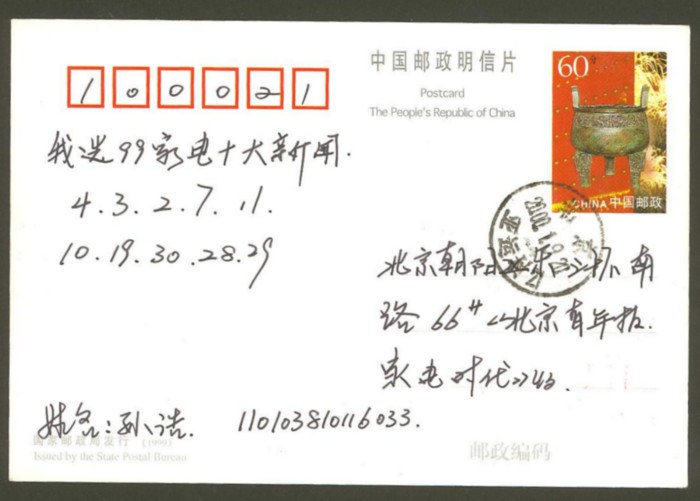 100021
中国邮政明信片
Postcard
The People's Republic of China
60分
CHINA 中国邮政
我选99家电十大新闻.
4.3.2.7.11.
10.19.30.28.29
2000.1.
北京朝阳区东三环南
路66#《北京青年报.
家电时代》
姓名:孙浩. 110103810116033.
国家邮政局发行 (1999)
Issued by the State Postal Bureau
邮政编码